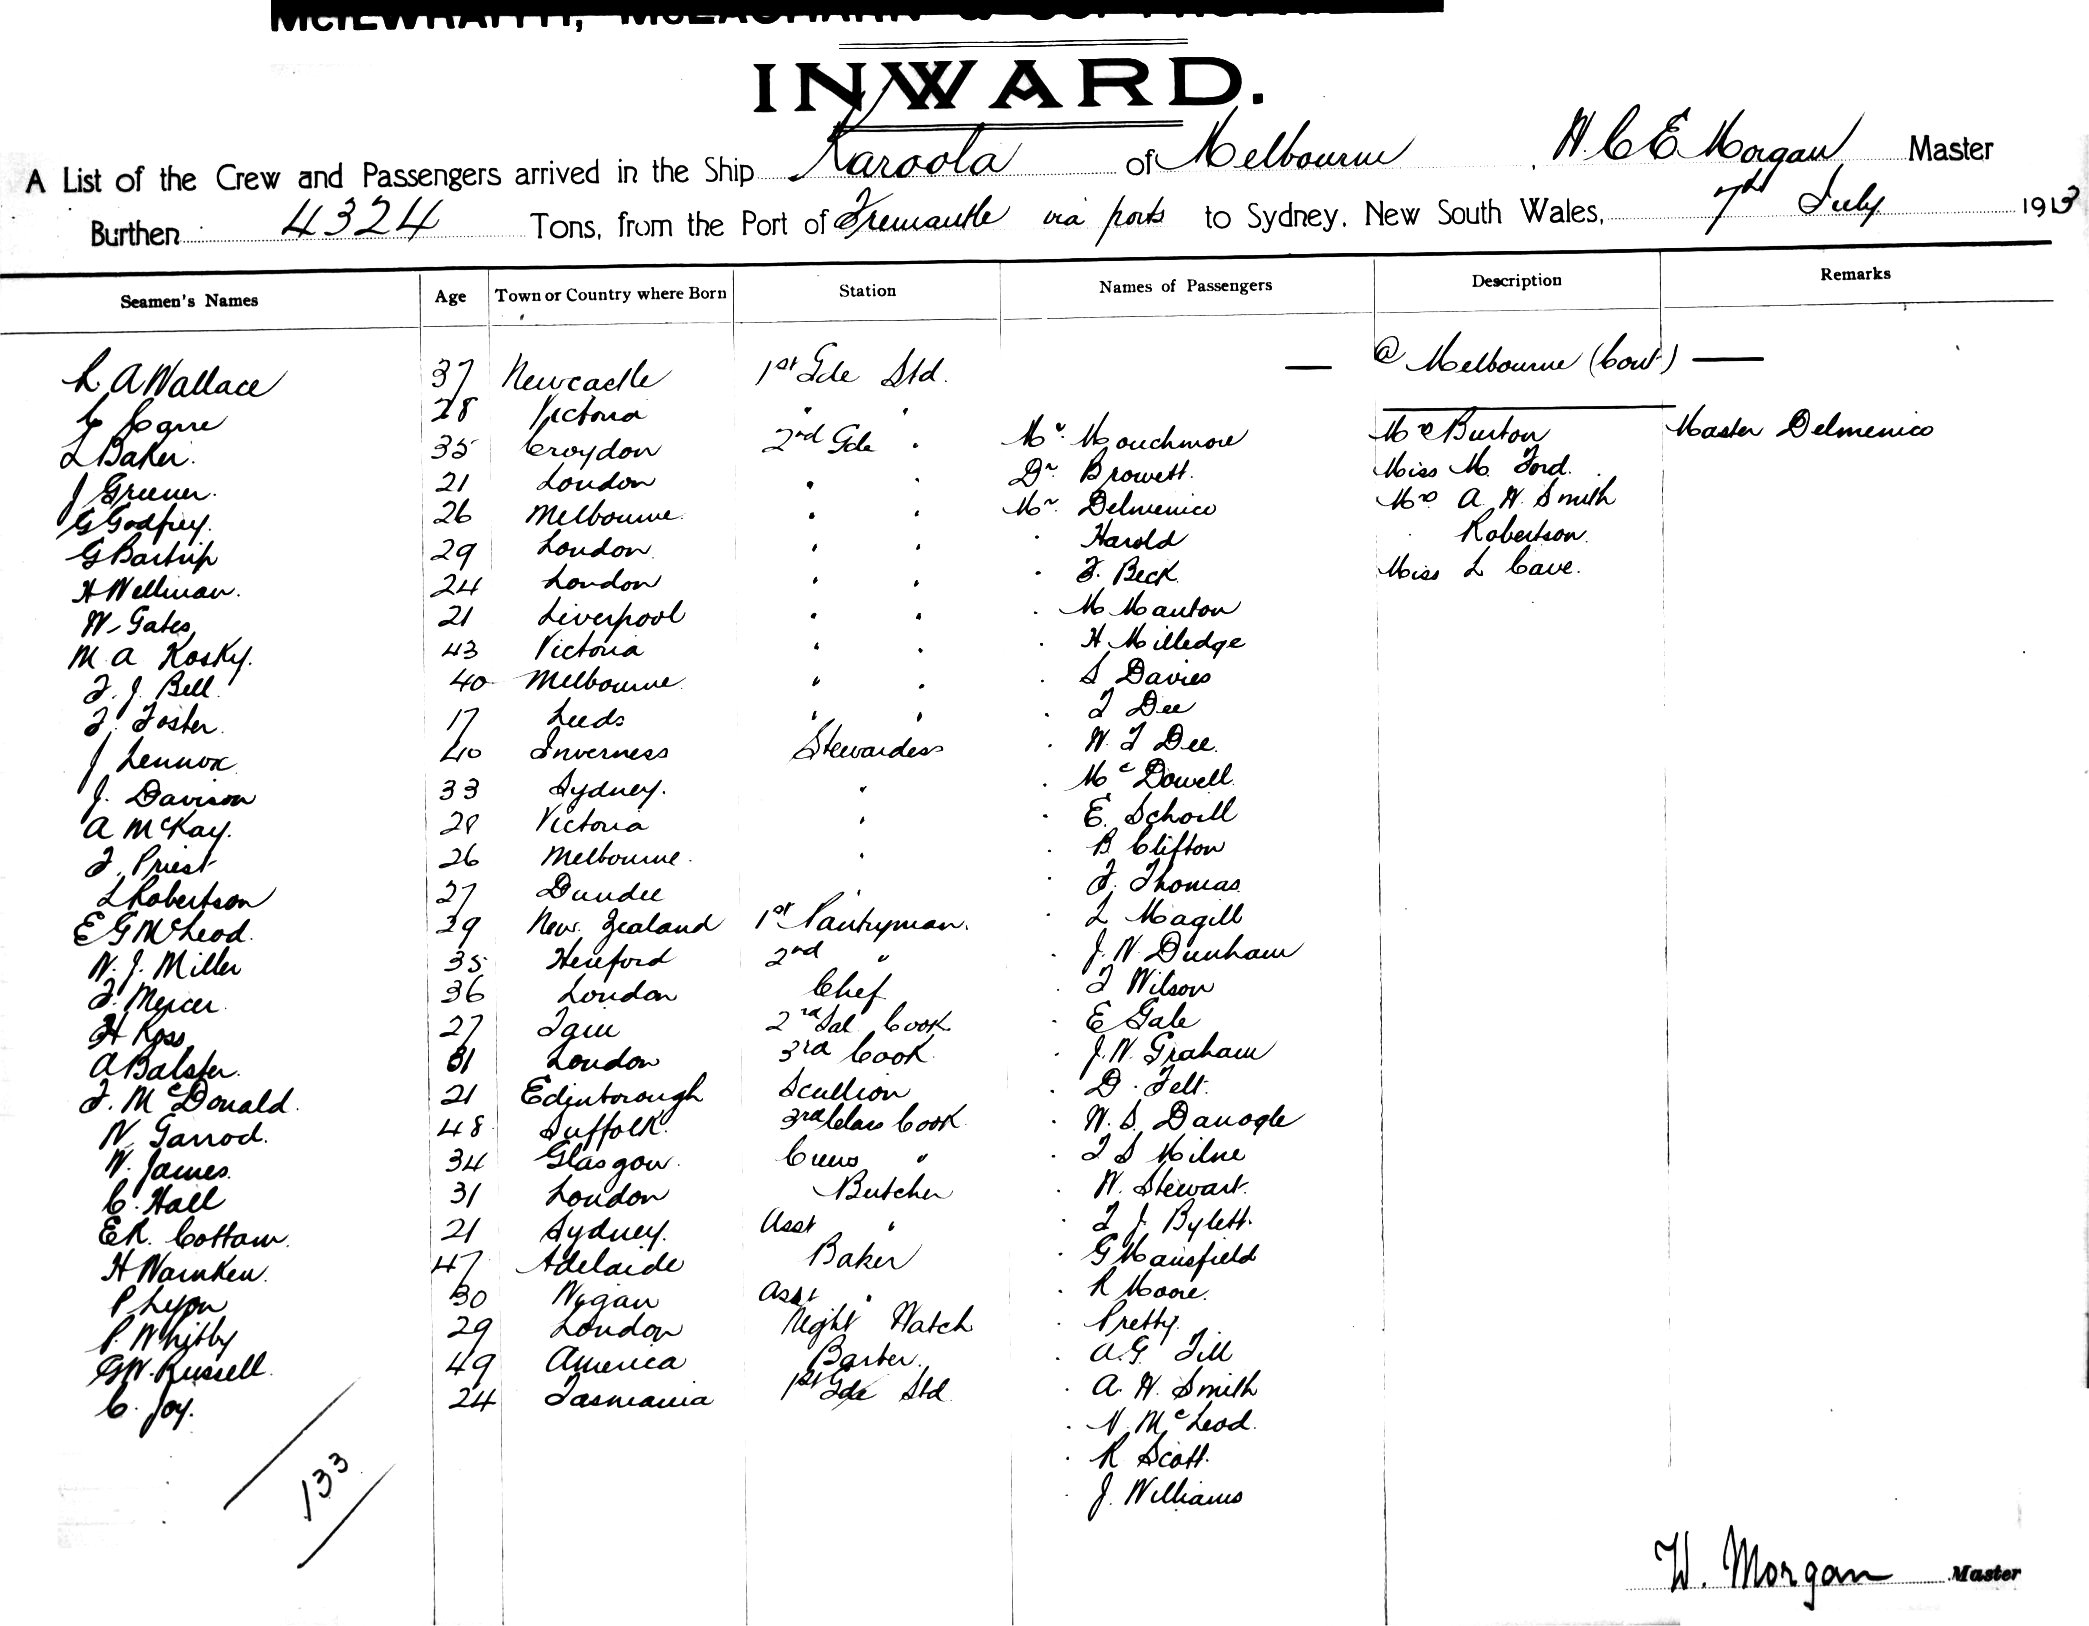 McILWRAITH, McEACHARN & CO. PROPRIE
INWARD.
A List of the Crew and Passengers arrived in the Ship Karoola of Melbourne, W. C E Morgan Master
Burthen 4324 Tons, from the Port of Fremantle via ports to Sydney, New South Wales, 7th July 1913
Seamen's Names Age Town or Country where Born Station Names of Passengers Description Remarks
— @ Melbourne (Cont) —
L A Wallace 37 Newcastle 1st Gde Std.
28 Victoria " "
L Baker. 35 Croydon 2nd Gde " Mr. Mouchmore Mrs Burton Master Delmenico
J Greener. 21 London " " Dr. Browett. Miss M. Ford.
G Godfrey. 26 Melbourne. " " Mr. Delmenico Mrs. A. H. Smith
G Bartrip 29 London. " " " Harold " Robertson.
H Wellman. 24 London " " " F. Beck Miss L Cave.
W Gates, 21 Liverpool " " " M Manton
M A Kosky. 43 Victoria " " " H Milledge
F. J. Bell. 40 Melbourne. " " " S Davies
F. Foster. 17 Leeds " " " F Dee
J Lennox 40 Inverness Stewardess " W. F Dee.
J. Davison 33 Sydney. " " McDowell.
A McKay. 28 Victoria " " E. Schoill
F. Priest 26 Melbourne. " " B Clifton
L Robertson 27 Dundee " " F. Thomas
E G McLeod. 39 New Zealand 1st Pantryman. " L Magill
W. J. Miller 35 Hereford 2nd " " J. W. Dunham
F. Mercer. 36 London Chef " F Wilson
H Ross 27 2nd Sal Cook " E Gale
A Balster. 31 London 3rd Cook " J. W. Graham
F. McDonald. 21 Edinborough Scullion " D. Felt.
W Garrod. 48 Suffolk. 3rd Class Cook " W. S. Danogle
W. James. 34 Glasgow. Crews " " F S Milne
C. Hall 31 London Butcher " W. Stewart.
E R. Cottam. 21 Sydney. Asst " " F J. Bylett.
H Warnken. 47 Adelaide Baker " G Mansfield
P Lyon 30 Wigan Asst " " R Moore.
P. Whitby 29 London Night Watch " Pretty.
G W. Russell. 49 America Barber. " A. G. Till
C. Joy. 24 Tasmania 1st Gde Std " A. H. Smith
" N. McLeod.
" R Scott.
" J. Williams
133
W. Morgan Master